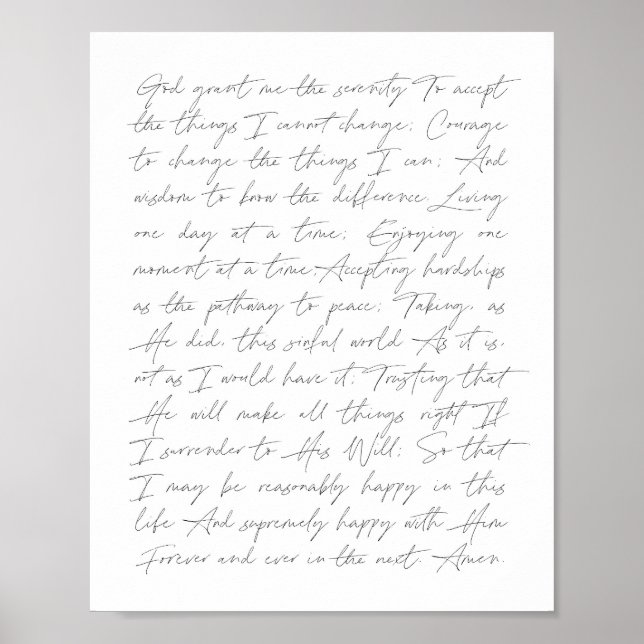 God grant me the serenity To accept
the things I cannot change; Courage
to change the things I can; And
wisdom to know the difference. Living
one day at a time; Enjoying one
moment at a time; Accepting hardships
as the pathway to peace; Taking, as
He did, this sinful world As it is,
not as I would have it; Trusting that
He will make all things right If
I surrender to His Will; So that
I may be reasonably happy in this
life And supremely happy with Him
Forever and ever in the next. Amen.